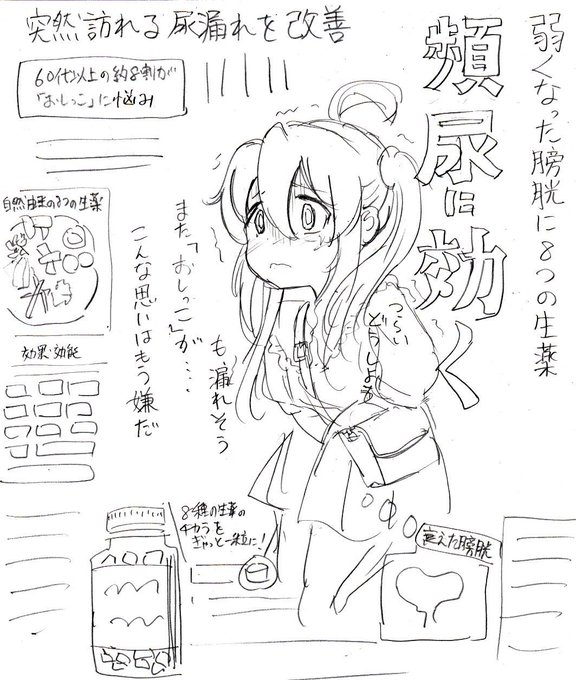 突然訪れる尿漏れを改善
弱くなった膀胱に8つの生薬
頻尿に効く
60代以上の約8割が
「おしっこ」に悩み
自然由来の8つの生薬
効果・効能
つらい
どうしよう
も漏れそう
また「おしっこ」が・・・・
こんな思いはもう嫌だ
8種の生薬の
チカラを
ぎゅっと一粒に!
衰えた膀胱